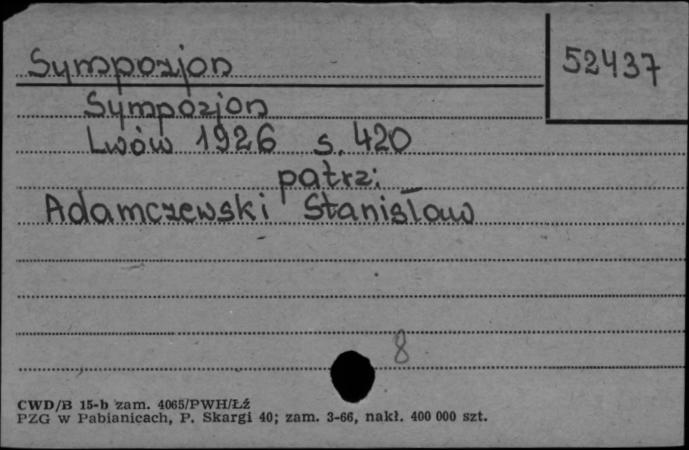 Sympozjon
52437
Sympozjon
Lwów 1926 s. 420
patrz:
Adamczewski Stanisław
8
CWD/B 15-b zam. 4065/PWH/Łź
PZG w Pabianicach, P. Skargi 40; zam. 3-66, nakł. 400 000 szt.